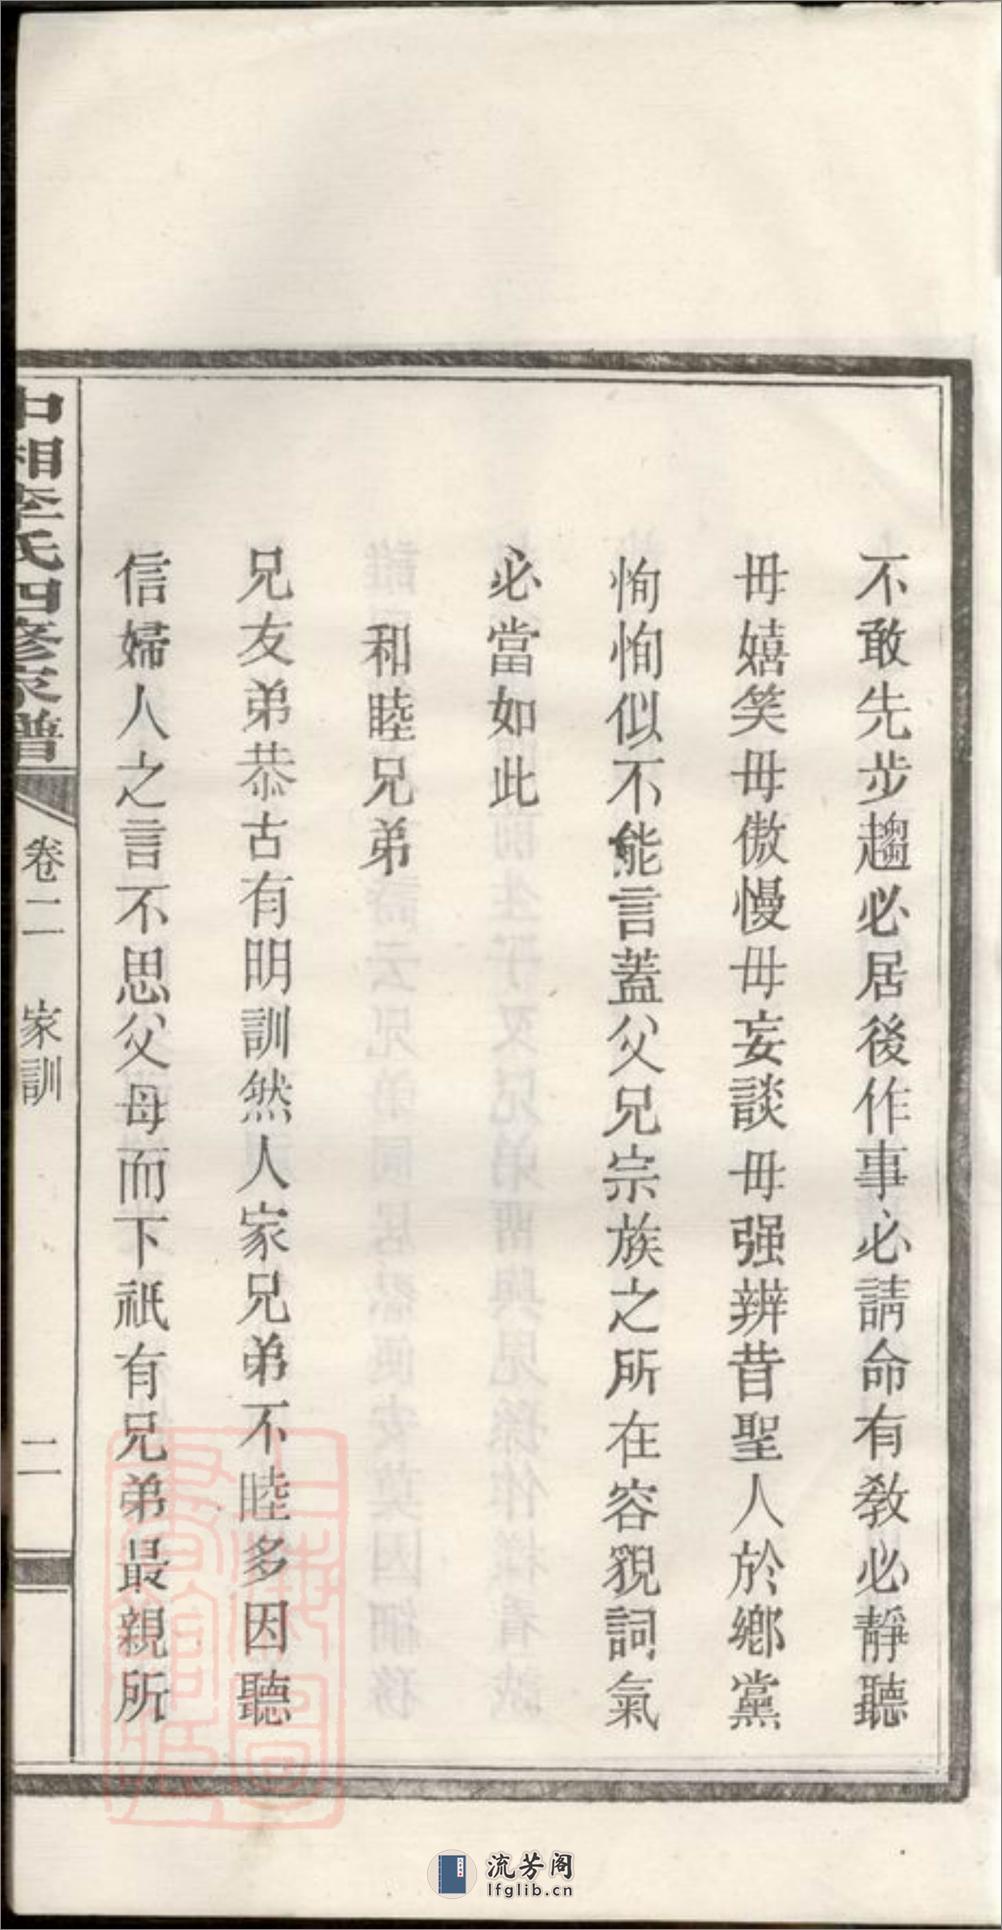 不敢先步趨必居後作事必請命有教必靜聽
毋嬉笑毋傲慢毋妄談毋强辨昔聖人於鄉黨
恂恂似不能言蓋父兄宗族之所在容貌詞氣
必當如此
和睦兄弟
兄友弟恭古有明訓然人家兄弟不睦多因聽
信婦人之言不思父母而下祇有兄弟最親所
中湘李氏四修家譜
卷二 家訓
二
上海圖書館藏
流芳阁
lfglib.cn